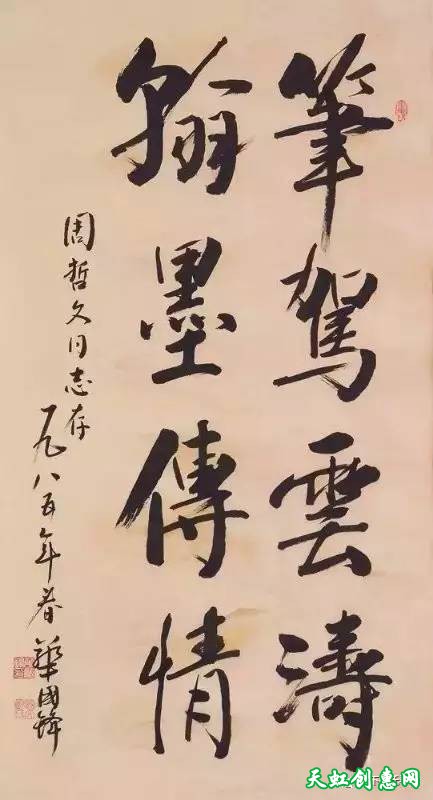 筆駕雲濤
翰墨傳情
周哲文同志存
一九八五年春
華國鋒
天虹创意网